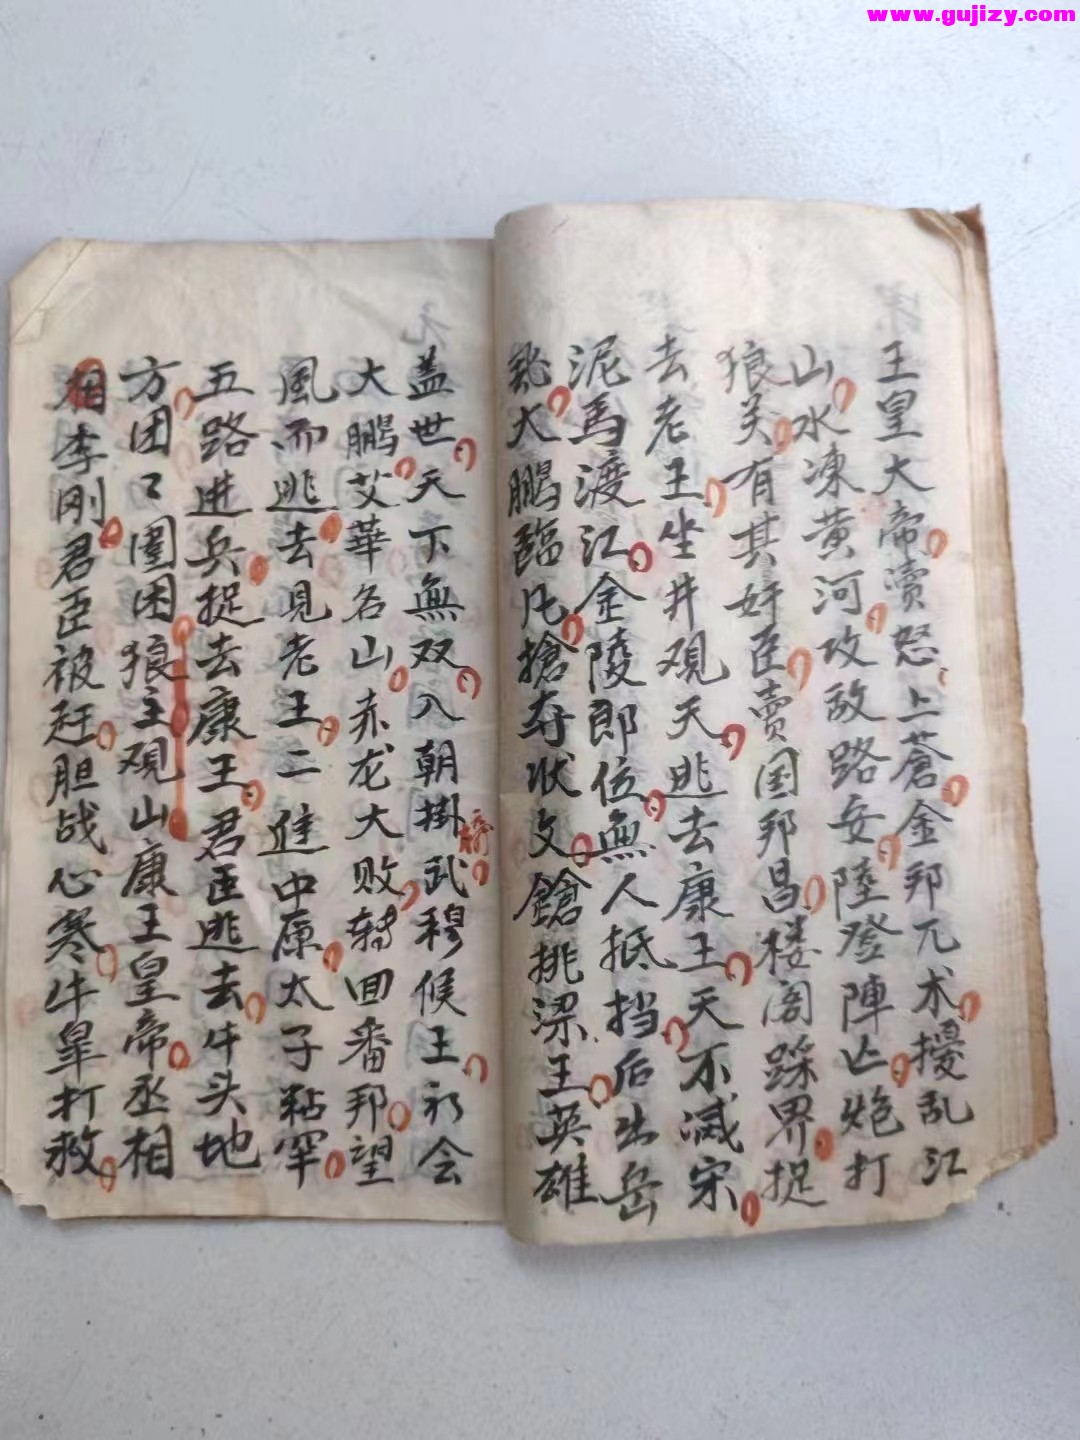 www.gujizy.com
王皇大帝渎怒上蒼金邦兀术擾乱江
山水凍黄河攻敌路安陸登陣亡炮打
狼关有其奸臣賣国邦昌楼阁踩界捉
去老王坐井观天逃去康王天不滅宋
泥馬渡江金陵郎位無人抵挡后出岳
大鵬臨凡搶夺状文鎗挑梁王英雄
盖世天下無双入朝掛帥武穆候王礽会
大鵬艾華名山赤龙大败转回番邦望
風而逃去見老王二進中原太子粘罕
五路进兵捉去康王君臣逃去牛头地
方团口圍困狼主观山康王皇帝丞相
相李刚君臣被赶胆战心寒牛皐打救